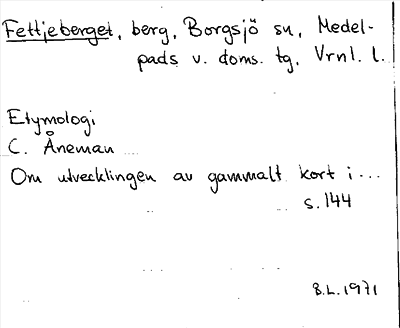 Fettjeberget, berg, Borgsjö sn, Medel-
pads v. doms. tg, Vrnl. l.
Etymologi
C. Åneman
Om utvecklingen av gammalt kort i...
s. 144
B.L. 1971